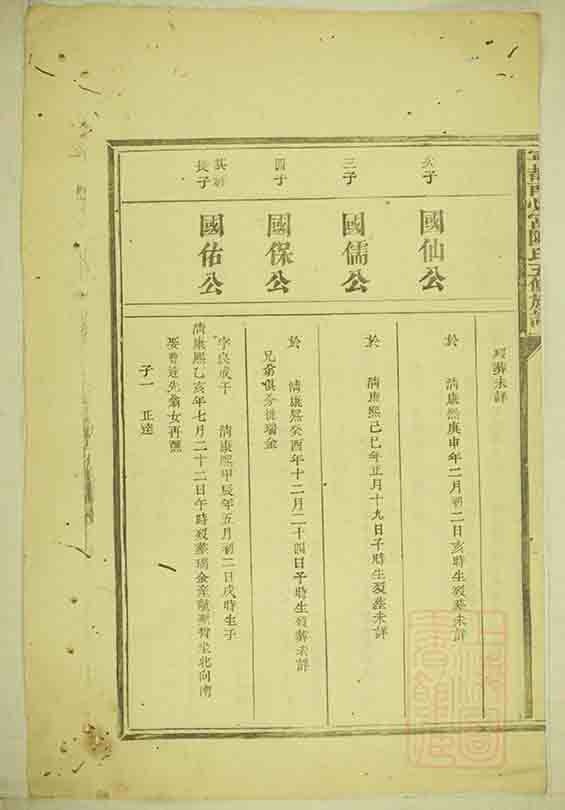 歿葬未詳
次子
國仙公
於
清康熙庚申年二月初二日亥時生歿葬未詳
三子
國儒公
於
清康熙己巳年正月十九日子時生歿葬未詳
四子
國保公
於
清康熙癸酉年十二月二十四日子時生歿葬未詳
兄弟俱分徙瑞金
長子
國佑公
字良成于 清康熙甲辰年五月初二日戌時生于
清康熙乙亥年七月二十二日午時歿葬瑞金 坐北向南
娶曹達先翁女再醮
子一 正達
陳氏五修族譜